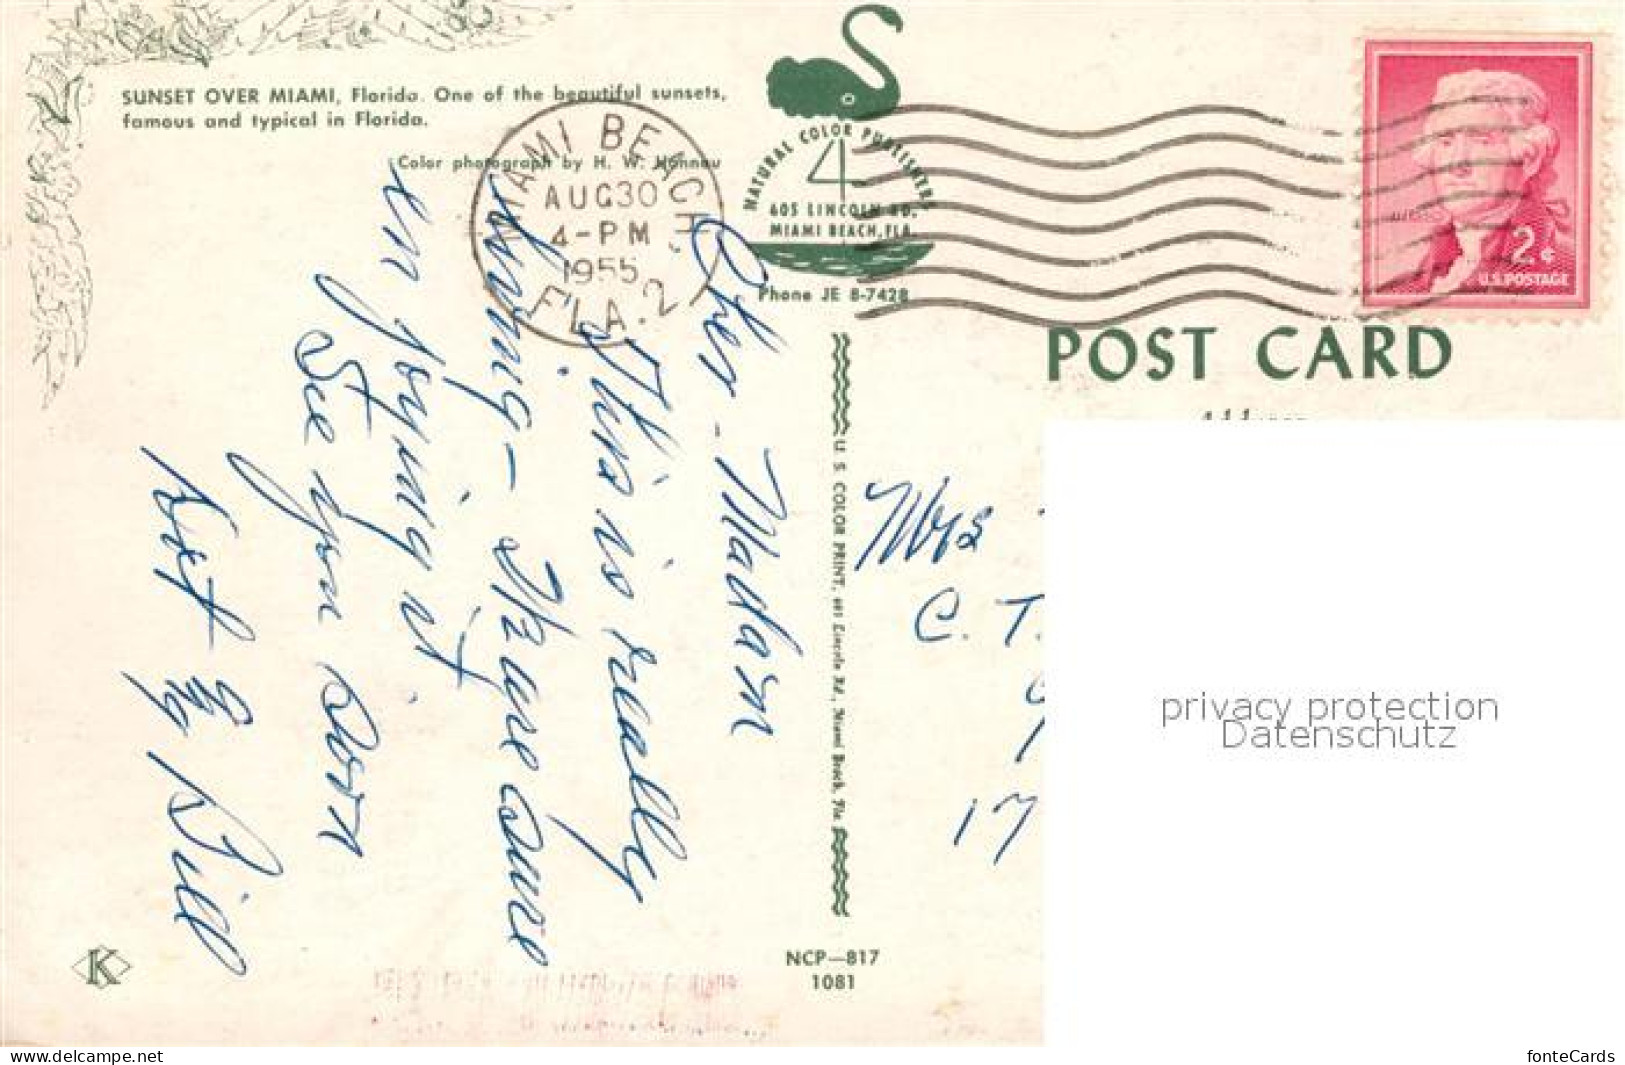 SUNSET OVER MIAMI, Florida. One of the beautiful sunsets,
famous and typical in Florida.
Color photograph by H. W. Hannau
MIAMI BEACH,
AUG 30
4-PM
1955
FLA. 2
NATURAL COLOR PUBLISHERS
4
605 LINCOLN RD.
MIAMI BEACH, FLA.
Phone JE 8-7428
2¢
U.S. POSTAGE
POST CARD
Address
Cher - Madam
This is really
living - & are sure
en joying it
See you soon
Kit & Bill
U S COLOR PRINT, 605 Lincoln Rd., Miami Beach, Fla
Mrs
C. T.
17
K
NCP—817
1081
privacy protection
Datenschutz
www.delcampe.net
fonteCards